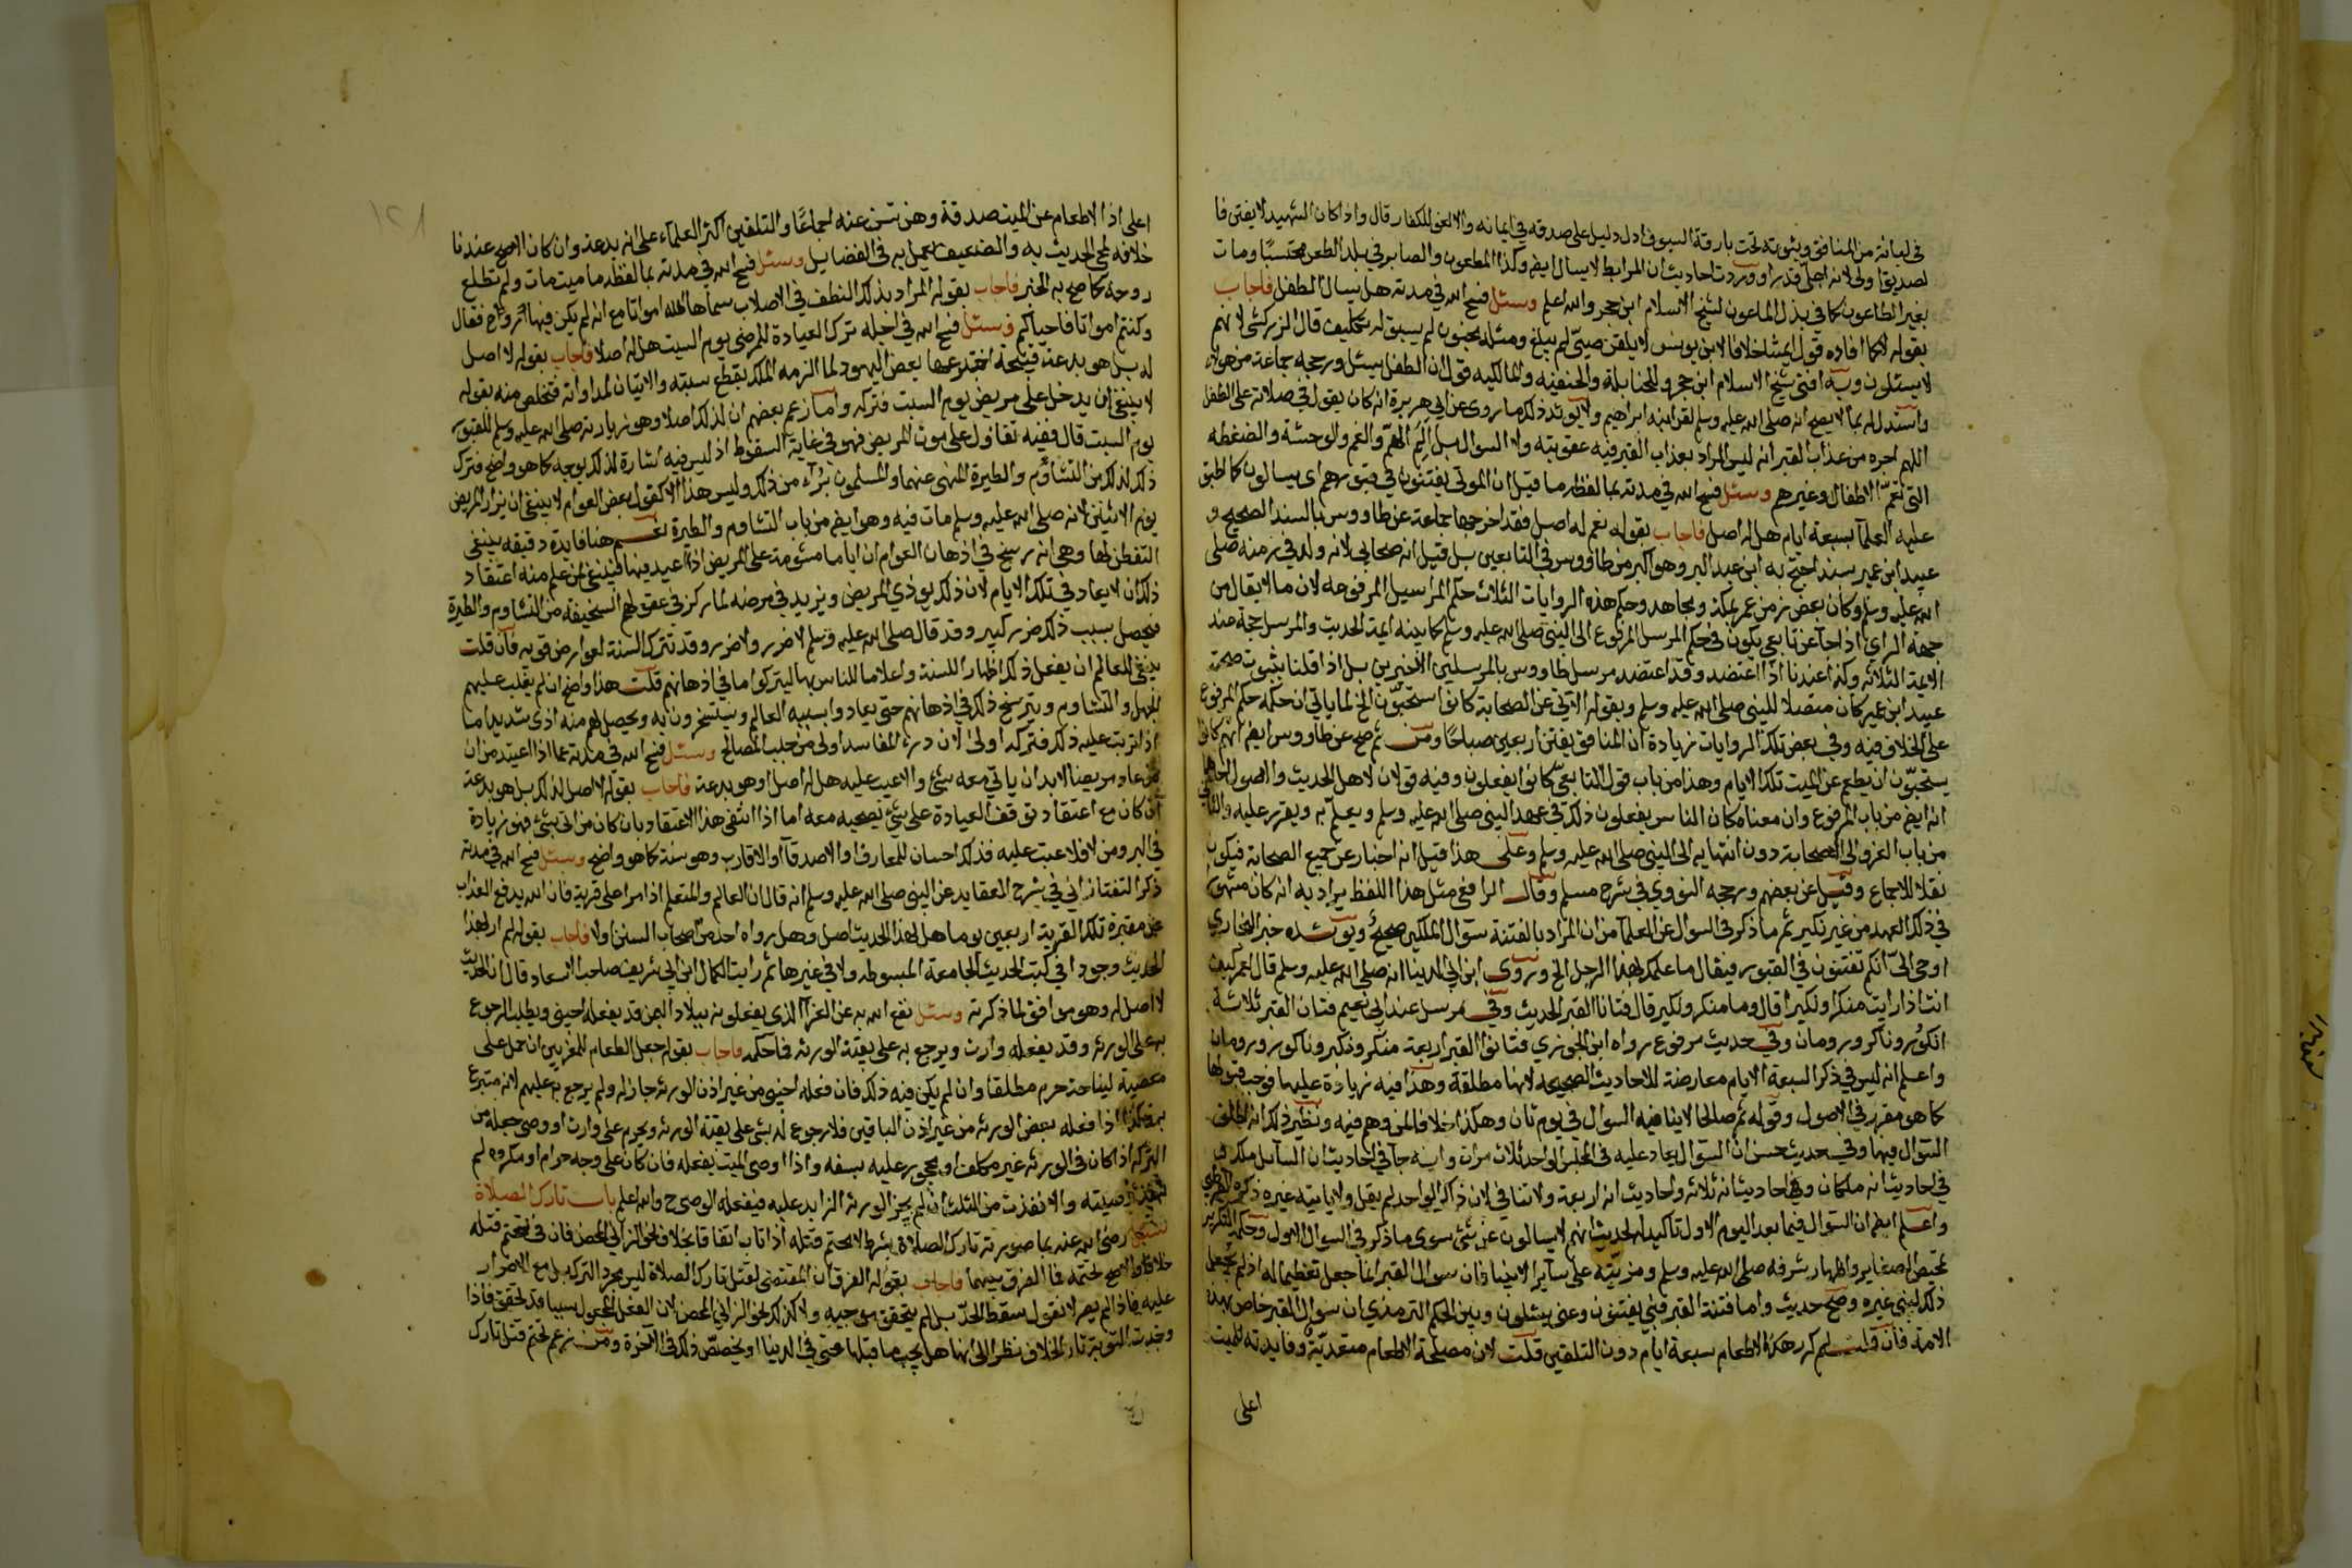 في ايمانه من المنافق وثبوته تحت بارقة السيوف ادل دليل على صدقه في ايمانه والا لفر للكفار قال واذا كان الشهيد لا يفتن فا
لصديق اولى لانه اجل قدرا ووردت احاديث ان المرابط لا يسال ايضا وكذا المطعون والصابر في بلد الطعن محتسبا ومات
بغير الطاعون كما في بذل الماعون لشيخ الاسلام ابن حجر والله اعلم وسئل فسح الله في مدته هل يسال الطفل فاجاب
بقوله كما افاده قول ايمتنا خلافا لابن يونس لا يلقن صبي لم يبلغ ومثله مجنون لم يسبق له تكليف قال الزركشي لانهم
لا يسئلون وبه افتى شيخ الاسلام ابن حجر وللحنابلة والحنفيه والمالكيه قول ان الطفل يسئل ورجحه جماعة من هولاء
واستدل له بما لا يصح انه صلى الله عليه وسلم لقن ابنه ابراهيم ولا يؤيد ذلك ما روي عن ابي هريرة انه كان يقول في صلاته على الطفل
اللهم اجره من عذاب القبر انه ليس المراد بعذاب القبر فيه عقوبته ولا السوال بل الم الهم والغم والوحشة والضغطه
التي تعم الاطفال وغيرهم وسئل فسح الله في مدته بما لفظه ما قيل ان الموتى يفتنون في قبورهم اي يسالون كما اطبق
عليه العلما سبعة ايام هل له اصل فاجاب بقوله نعم له اصل فقد اخرجها جماعة عن طاووس بالسند الصحيح و
عبيد ابن عمير بسند احتج به ابن عبد البر وهو اكبر من طاووس في التابعين بل قيل انه صحابي لانه ولد في زمنه صلى
الله عليه وسلم وكان بعض زمن عمر بمكة ومجاهد وحكم هذه الروايات الثلاث حكم المراسيل المرفوعه لان ما لا يقال من
جهة الراي اذا جآ عن تابعي يكون في حكم المرسل المرفوع الى النبي صلى الله عليه وسلم كما بينه ايمة الحديث والمرسل حجة عند
الايمة الثلاثه وكذا عندنا اذا اعتضد وقد اعتضد مرسل طاووس بالمرسلين الاخيرين بل اذا قلنا بثبوت صحبة
عبيد ابن عمير كان متصلا للنبي صلى الله عليه وسلم وبقوله الاتي عن الصحابة كانوا يستحبون الخ لما ياتي ان حكمه حكم المرفوع
على الخلاف فيه وفي بعض تلك الروايات زيادة ان المنافق يفتن اربعين صباحا ومن ثم صح عن طاووس ايضا انهم كانوا
يستحبون ان يطعم عن الميت تلك الايام وهذا من باب قول التابعي كانوا يفعلون وفيه قولان لاهل الحديث والاصول احدهما
انه ايضا من باب المرفوع وان معناه كان الناس يفعلون ذلك في عهد النبي صلى الله عليه وسلم ويعلم به ويقرر عليه والثاني
من باب العزو الى الصحابة دون انتهايه الى النبي صلى الله عليه وسلم وعلى هذا قيل انه اخبار عن جميع الصحابة فيكون
نقلا للاجماع وقيل عن بعضهم ورجحه النووي في شرح مسلم وقال الرافعي مثل هذا اللفظ يراد به انه كان مشهورا
في ذلك العهد من غير نكير ثم ما ذكر في السوال عن العلما من ان المراد بالفتنة سوال الملكين صحيح ويؤيده خبر البخاري
اوحي الي انكم تفتنون في القبور فيقال ما علمك بهذا الرجل الخ وروى ابن ابي الدنيا انه صلى الله عليه وسلم قال لعمر كيف
انت اذا رايت منكرا ونكيرا قال وما منكر ونكير قال فتانا القبر الحديث وفي مرسل عند ابي نعيم فتان القبر ثلاثة
انكور وناكر ورومان وفي حديث مرفوع رواه ابن الجوزي فتانوا القبر اربعة منكر ونكير وناكور ورومان
واعلم انه ليس في ذكر السبعة الايام معارضة للاحاديث الصحيحه لانها مطلقة وهذا فيه زيادة عليها فوجب قبولها
كما هو مقرر في الاصول وقوله ثم صالحا لا ينافيه السوال في يوم ثان وهكذا خلافا لمن وهم فيه ونظير ذلك انه اطلق
السوال فيها وفي حديث حسن ان السوال يعاد عليه في المجلس الواحد ثلاث مرات وانه جآ في احاديث ان السآئل ملك و
في احاديث انه ملكان وفي احاديث انه ثلاثه واحاديث انه اربعة ولا تنافي لان ذاكر الواحد لم يقل ولا ياتيه غيره ذكره القرطبي
واعلم ايضا ان السوال فيما بعد اليوم الاول تاكيد له لحديث انهم لا يسالون عن شي سوى ما ذكر في السوال الاول وحكمة التكرير
تمحيص الصغاير واظهار شرفه صلى الله عليه وسلم ومزيته على سآير الانبيا ذان سوال القبر انما جعل تعظيما له اذ لم يجعل
ذلك لنبي غيره وصح حديث واما فتنة القبر فبي يفتنون وعني يسئلون وبين الحكم الترمذي ان سوال القبر خاص بهذه
الامة فان قلت لم كرر هكذا الاطعام سبعة ايام دون التلقين قلت لان مصلحة الاطعام متعدية وفايدته للميت
اعلى
١٢١
اعلى اذ الاطعام عن الميت صدقة وهي تسن عنه اجماعا والتلقين اكثر العلمآء على انه بدعة وان كان الاصح عندنا
خلافه لمجي الحديث به والضعيف يعمل به في الفضايل وسئل فسح الله في مدته بما لفظه ما ميت مات ولم تطلع
روحه كما صح به الخبر فاجاب بقوله المراد بذلك النطف في الاصلاب سماها الله امواتا مع انه لم يكن فيها ارواح فقال
وكنتم امواتا فاحياكم وسئل فسح الله في اجله ترك العيادة للمرضى يوم السبت هل له اصل فاجاب بقوله لا اصل
له بل هو بدعة قبيحة اخترعها بعض اليهود لما الزمه الملك بقطع سبته والاتيان لمداواته فتخلص منه بقوله
لا ينبغي ان يدخل على مريض يوم السبت فتركه واما زعم بعضهم ان لذلك اصلا وهو زيارته صلى الله عليه وسلم للقبور
يوم السبت قال ففيه تفاؤل على موت المريض فهو في غاية السقوط اذ ليس فيه اشارة لذلك بوجه كما هو واضح فترك
ذلك لذلك من التشاؤم والطيرة المنهي عنهما والمسلمون برآء من ذلك وليس هذا الا كقول بعض العوام لا ينبغي ان يزار المريض
يوم الاثنين لانه صلى الله عليه وسلم مات فيه وهو ايضا من باب التشاوم والطيرة نعم هنا فايدة دقيقه ينبغي
التفطن لها وهي انه رسخ في اذهان العوام ان اياما مشومة على المريض اذا اعيد فيها فينبغي لمن علم منه اعتقاد
ذلك ان لا يعاد في تلك الايام لان ذلك يوذي المريض ويزيد في مرضه لما ركز في عقولهم السخيفة من التشاوم والطيرة
فيحصل بسبب ذلك ضرر كبير وقد قال صلى الله عليه وسلم لا ضرر ولا ضرر وقد تترك السنة لعوارض قويه فان قلت
ينبغي للعالم ان يفعل ذلك اظهارا للسنة واعلاما للناس بها ليتركوا ما في اذهانهم قلت هذا واضح ان لم يغلب عليهم
الجهل والتشاوم ويترسخ ذلك في اذهانهم حتى يعادوا بسببه العالم ويستسخرون به ويحصل لهم منه اذى شديد اما
اذا ترتب عليه ذلك فتركه اولى لان درء المفاسد اولى من جلب المصالح وسئل فسح الله في مدته عما اذا اعتيد من ان
من عاد مريضا لا بد ان ياتي معه بشئ والا عيب عليه هل له اصل او هو بدعة فاجاب بقوله لا اصل لذلك بل هو بدعة
ان كان مع اعتقاد توقف العيادة على شئ يصحبه معه اما اذا انتفى هذا الاعتقاد بان كان من اتى بشئ فهو زيادة
في البر ومن لا فلا عيب عليه فذلك احسان للمعارف او الاصدقآ او الاقارب وهو سنة كما هو واضح وسئل فسح الله في مدته
ذكر التفتازاني في شرح العقايد عن النبي صلى الله عليه وسلم انه قال ان العالم والمتعلم اذا مرا على قرية فان الله يرفع العذاب
عن مقبرة تلك القرية اربعين يوما هل لهذا الحديث اصل وهل رواه احد من اصحاب السنن اولا فاجاب بقوله لم ار لهذا
الحديث وجودا في كتب الحديث الجامعة المبسوطه ولا في غيرها ثم رايت الكمال ابن ابي شريف صاحب الاسعاد قال ان الحديث
لا اصل له وهو موافق لما ذكرته وسئل نفع الله به عن العزآ الذي يفعلونه ببلاد اليمن قد يفعله اجنبي ويطلب الرجوع
به على الورثه وقد يفعله وارث ويرجع به على بقية الورثه فما حكمه فاجاب بقوله جعل الطعام للمعزيين ان حمل على
معصية لنياحة حرم مطلقا وان لم يكن فيه ذلك فان فعله اجنبي من غير اذن الورثه جاز له ولم يرجع به عليهم لانه متبرع
به وكذا اذا فعله بعض الورثه من غير اذن الباقين فلا رجوع له بشي على بقية الورثه ويحرم على وارث او وصي جعله من
التركه اذا كان في الورثه غير مكلف او محجور عليه بسفه واذا اوصى الميت بفعله فان كان على وجه حرام او مكروه لم
تنفذ وصيته والا نفذت من الثلث ان لم يجز الورثه الزايد عليه فيفعله الوصي ح والله اعلم باب تارك الصلاة
سئل رضي الله عنه بما صورته تارك الصلاة بشرطه لا يتحتم قتله اذا تاب اتفاقا بخلاف نحو الزاني المحصن فان في تحتم قتله
خلافا والاصح تحتمه فما الفرق بينهما فاجاب بقوله الفرق ان المقتضي لقتل تارك الصلاة ليس مجرد الترك بل مع الاصرار
عليه فاذا لم يصر لا نقول سقط الحد بل لم يتحقق موجبه ولا كذلك نحو الزاني المحصن لان الفعل المجعول سببا قد تحقق فاذا
وجدت التوبة ثار الخلاف نظرا الى انها هل يجب ما قبلها حتى في الدنيا او يختص ذلك في الآخرة ومن زعم تحتم قتل تارك